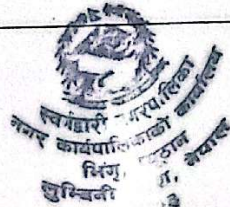 स्वर्गद्वारी नगरपालिका
नगर कार्यपालिकाको कार्यालय
भिंगृ,
लुम्बिनी नेपाल